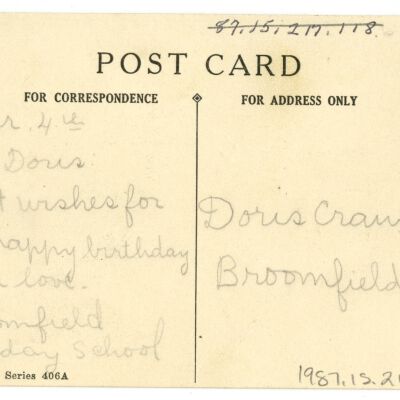 87.15.217.118
POST CARD
FOR CORRESPONDENCE
FOR ADDRESS ONLY
4th
Doris
wishes for
happy birthday
love.
School
Series 406A
Doris
Broomfield